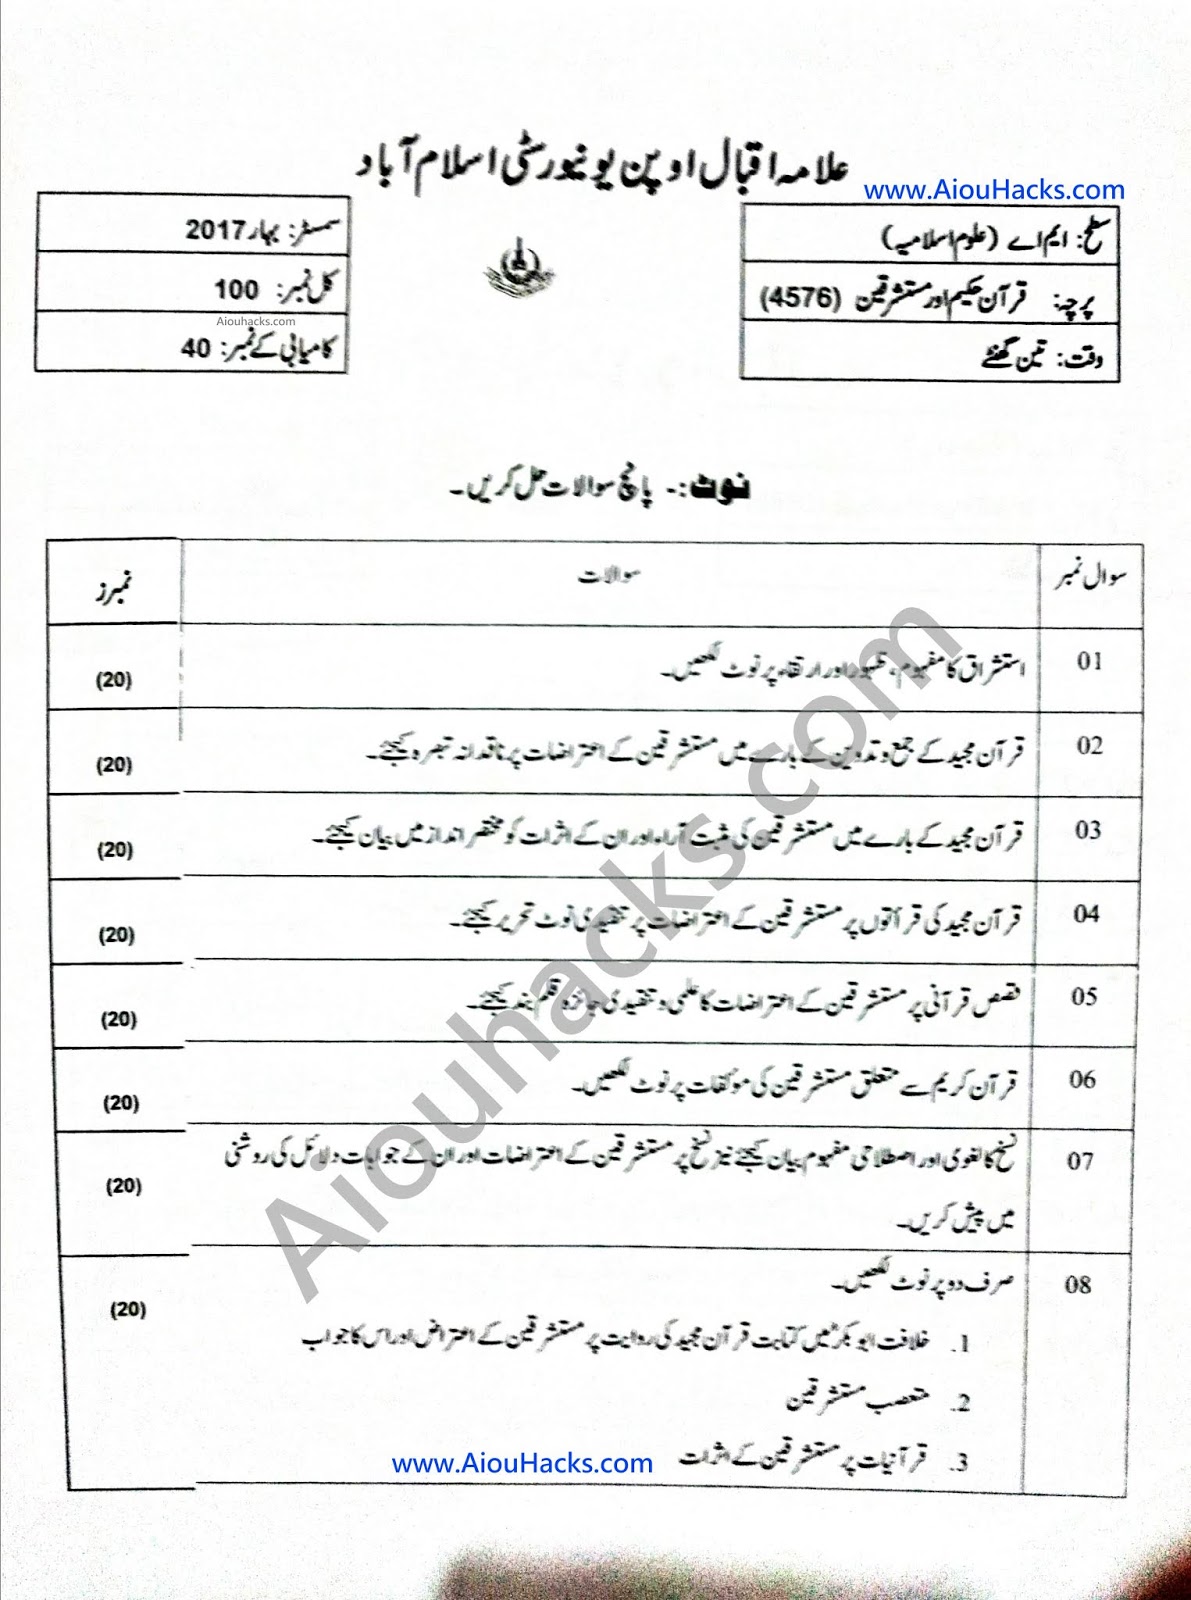 علامہ اقبال اوپن یونیورسٹی اسلام آباد
www.AiouHacks.com
سطح: ایم اے (علوم اسلامیہ)
پرچہ: قرآن حکیم اور مستشرقین (4576)
وقت: تین گھنٹے
سمسٹر: بہار 2017
کل نمبر: 100
Aiouhacks.com
کامیابی کے نمبر: 40
نوٹ:- پانچ سوالات حل کریں۔
سوال نمبر سوالات نمبرز
01 استشراق کا مفہوم، ظہور اور ارتقاء پر نوٹ لکھیں۔ (20)
02 قرآن مجید کے جمع و تدوین کے بارے میں مستشرقین کے اعتراضات پر ناقدانہ تبصرہ کیجئے۔ (20)
03 قرآن مجید کے بارے میں مستشرقین کی مثبت آراء اور ان کے اثرات کو مختصر انداز میں بیان کیجئے۔ (20)
04 قرآن مجید کی قرأتوں پر مستشرقین کے اعتراضات پر تنقیدی نوٹ تحریر کیجئے۔ (20)
05 قصص قرآنی پر مستشرقین کے اعتراضات کا علمی و تنقیدی جائزہ قلم بند کیجئے۔ (20)
06 قرآن کریم سے متعلق مستشرقین کی مؤلفات پر نوٹ لکھیں۔ (20)
07 نسخ کا لغوی اور اصطلاحی مفہوم بیان کیجئے نیز نسخ پر مستشرقین کے اعتراضات اور ان کے جوابات دلائل کی روشنی (20)
میں پیش کریں۔
08 صرف دو پر نوٹ لکھیں۔ (20)
1. خلافت ابوبکرؓ میں کتابت قرآن مجید کی روایت پر مستشرقین کے اعتراض اور اس کا جواب
2. متعصب مستشرقین
3. قرآنیات پر مستشرقین کے اثرات
www.AiouHacks.com
Aiouhacks.com